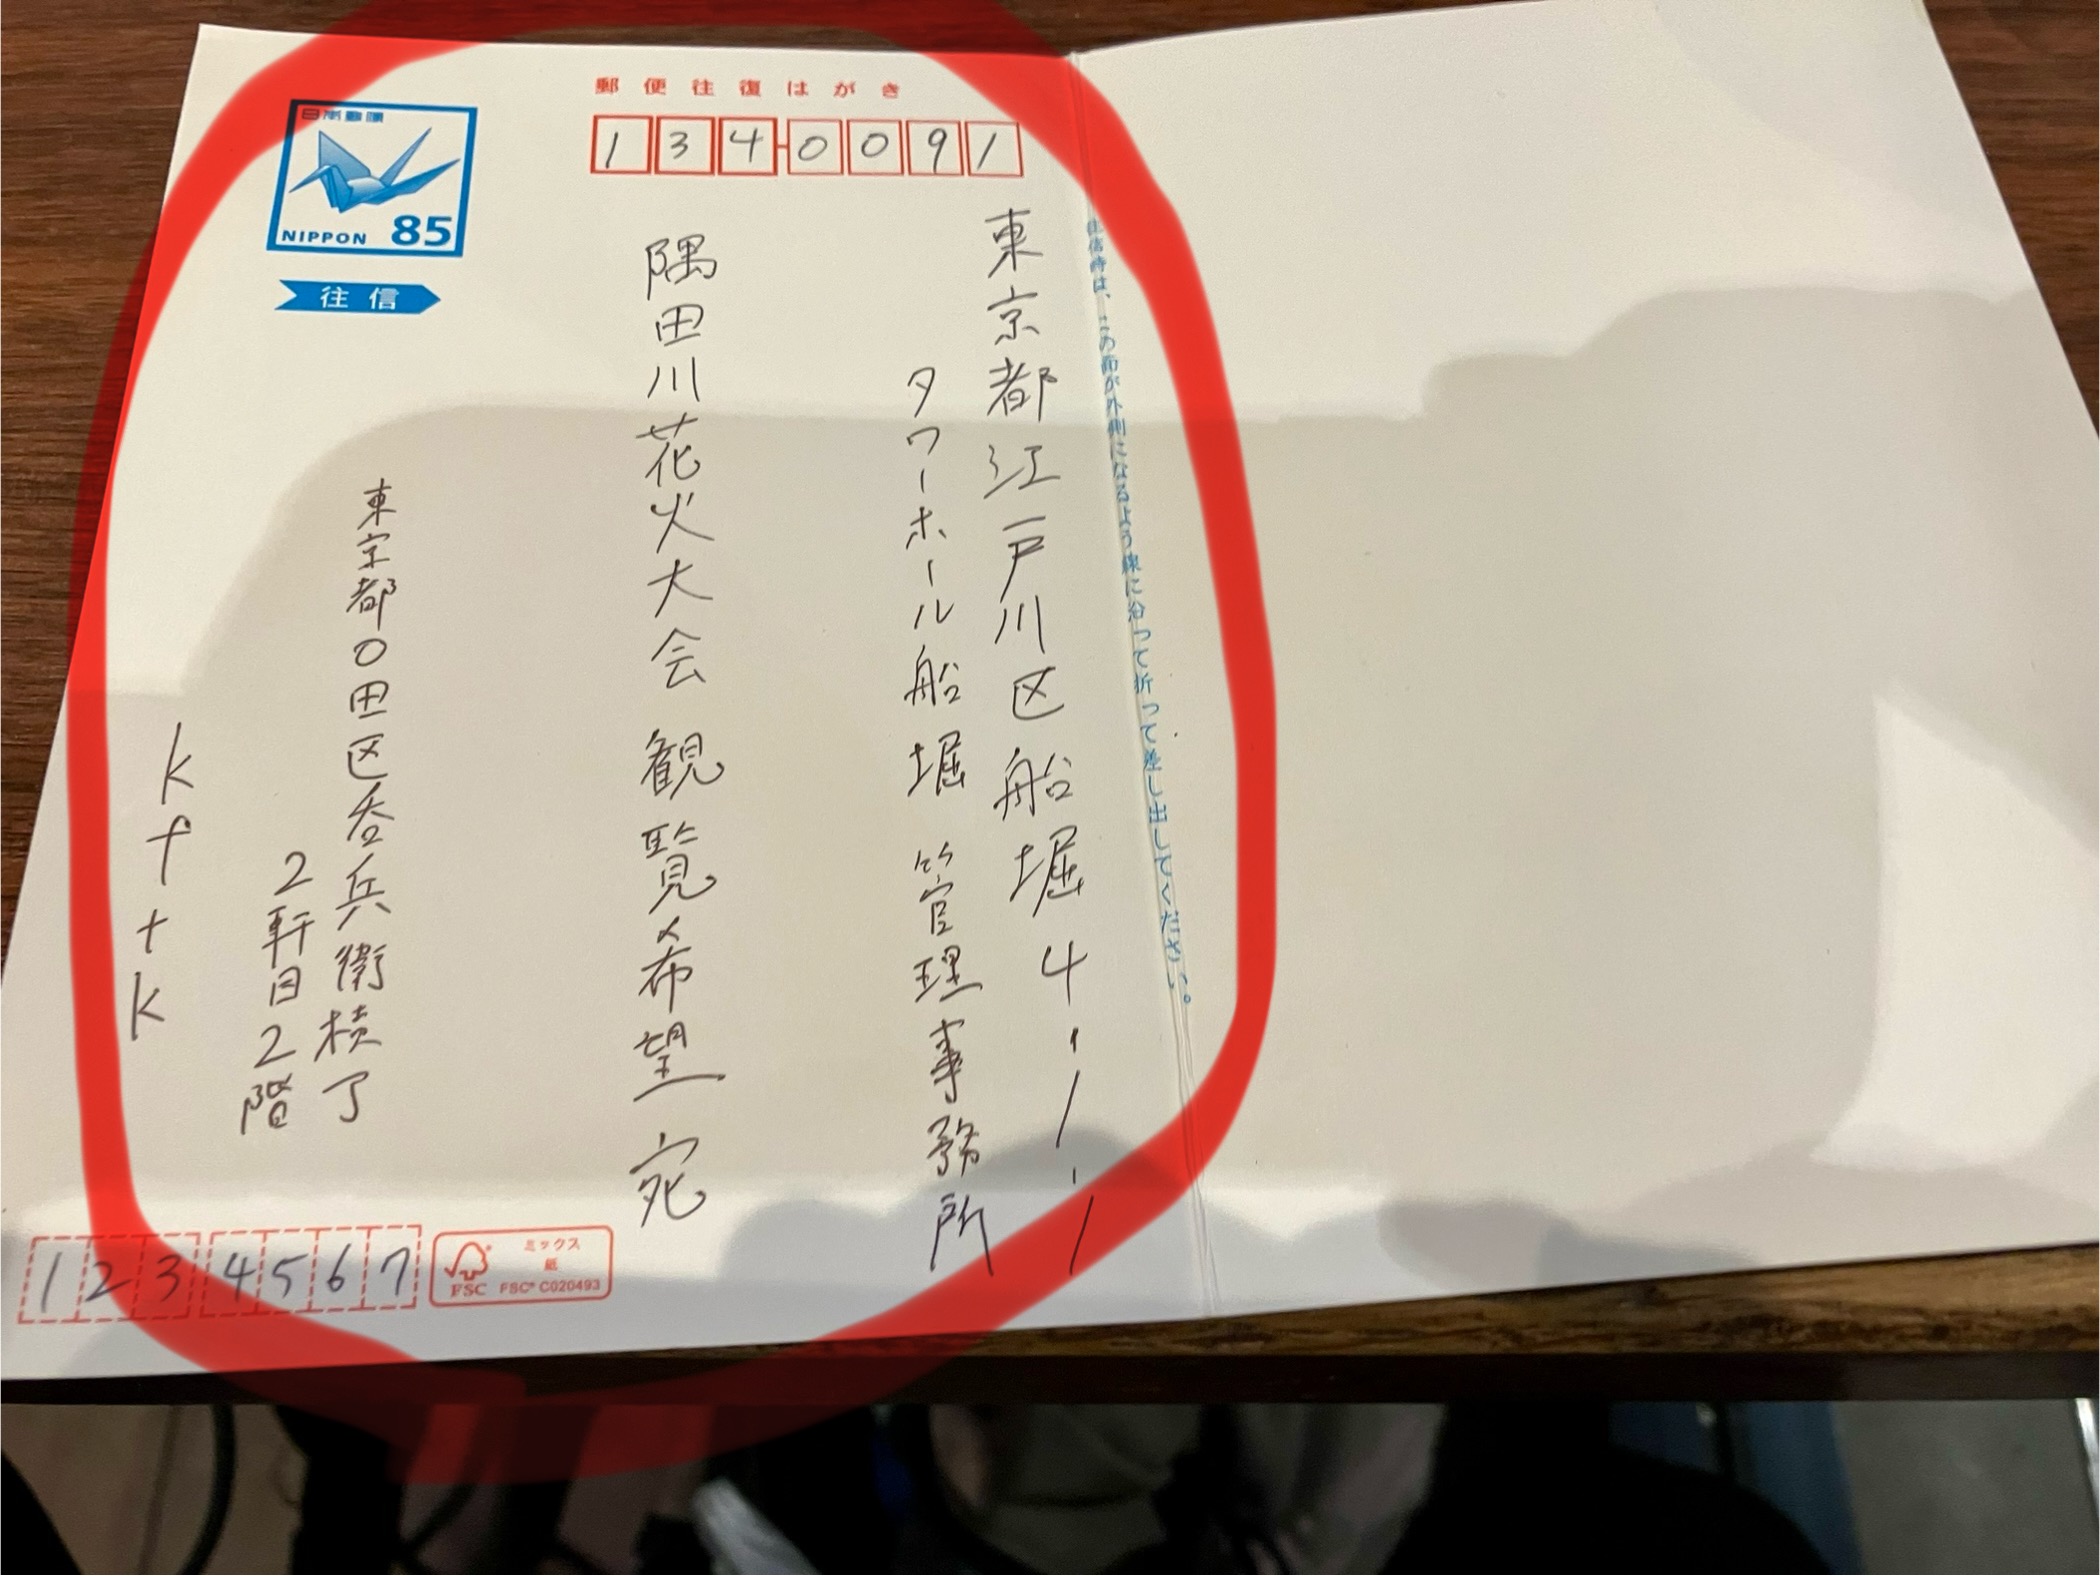 郵便往復はがき
134-0091
日本郵便
NIPPON 85
往信
往信時は、この面が外側になるよう線に沿って折って差し出してください。
東京都江戸川区船堀4-1-1
タワーホール船堀 管理事務所
隅田川花火大会 観覧希望 宛
東京都〇田区呑兵衛横丁
2軒目2階
kftk
1234567
FSC
ミックス
紙
FSC® C020493